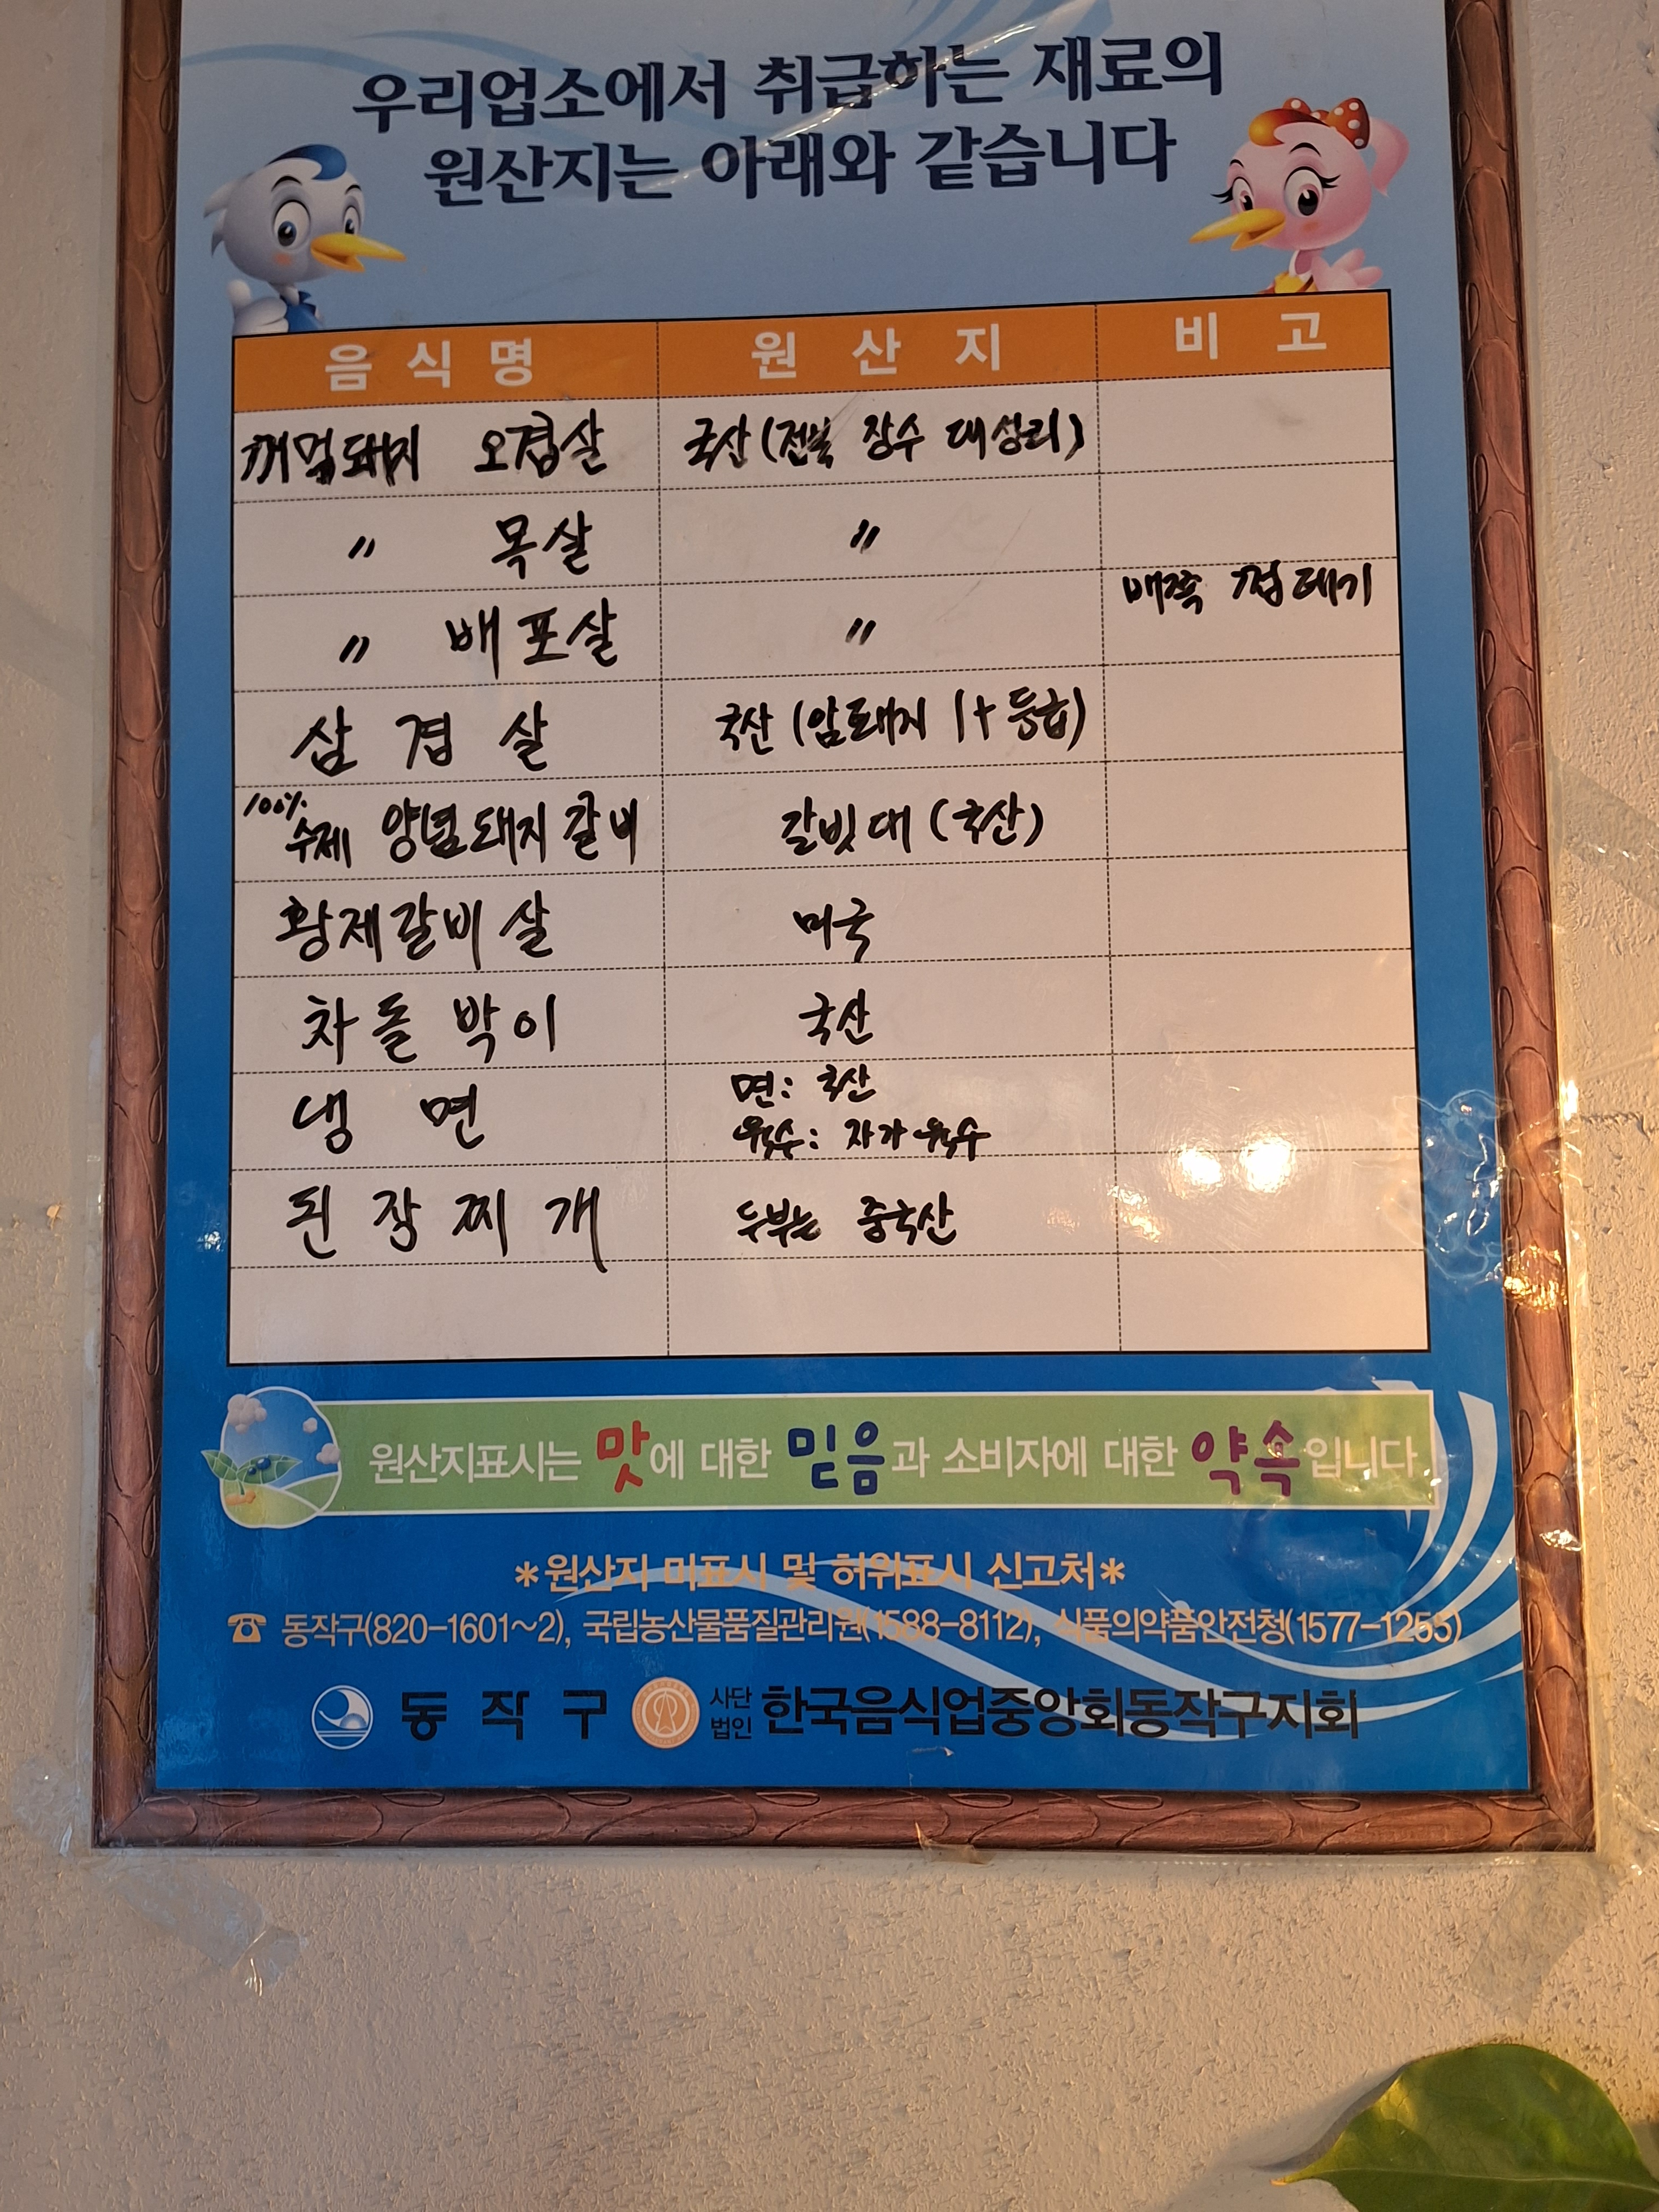 우리업소에서 취급하는 재료의
원산지는 아래와 같습니다
음식명 원산지 비고
꺼먹돼지 오겹살 국산(전북 장수 대성리)
〃 목살 〃
〃 배포살 〃 배쪽 껍데기
삼겹살 국산(암퇘지 1+등급)
100% 수제 양념돼지갈비 갈빗대(국산)
황제갈비살 미국
차돌박이 국산
냉면 면: 국산
육수: 자가육수
된장찌개 두부는 중국산
원산지표시는 맛에 대한 믿음과 소비자에 대한 약속입니다.
*원산지 미표시 및 허위표시 신고처*
☎ 동작구(820-1601~2), 국립농산물품질관리원(1588-8112), 식품의약품안전청(1577-1255)
동작구 사단법인 한국음식업중앙회동작구지회